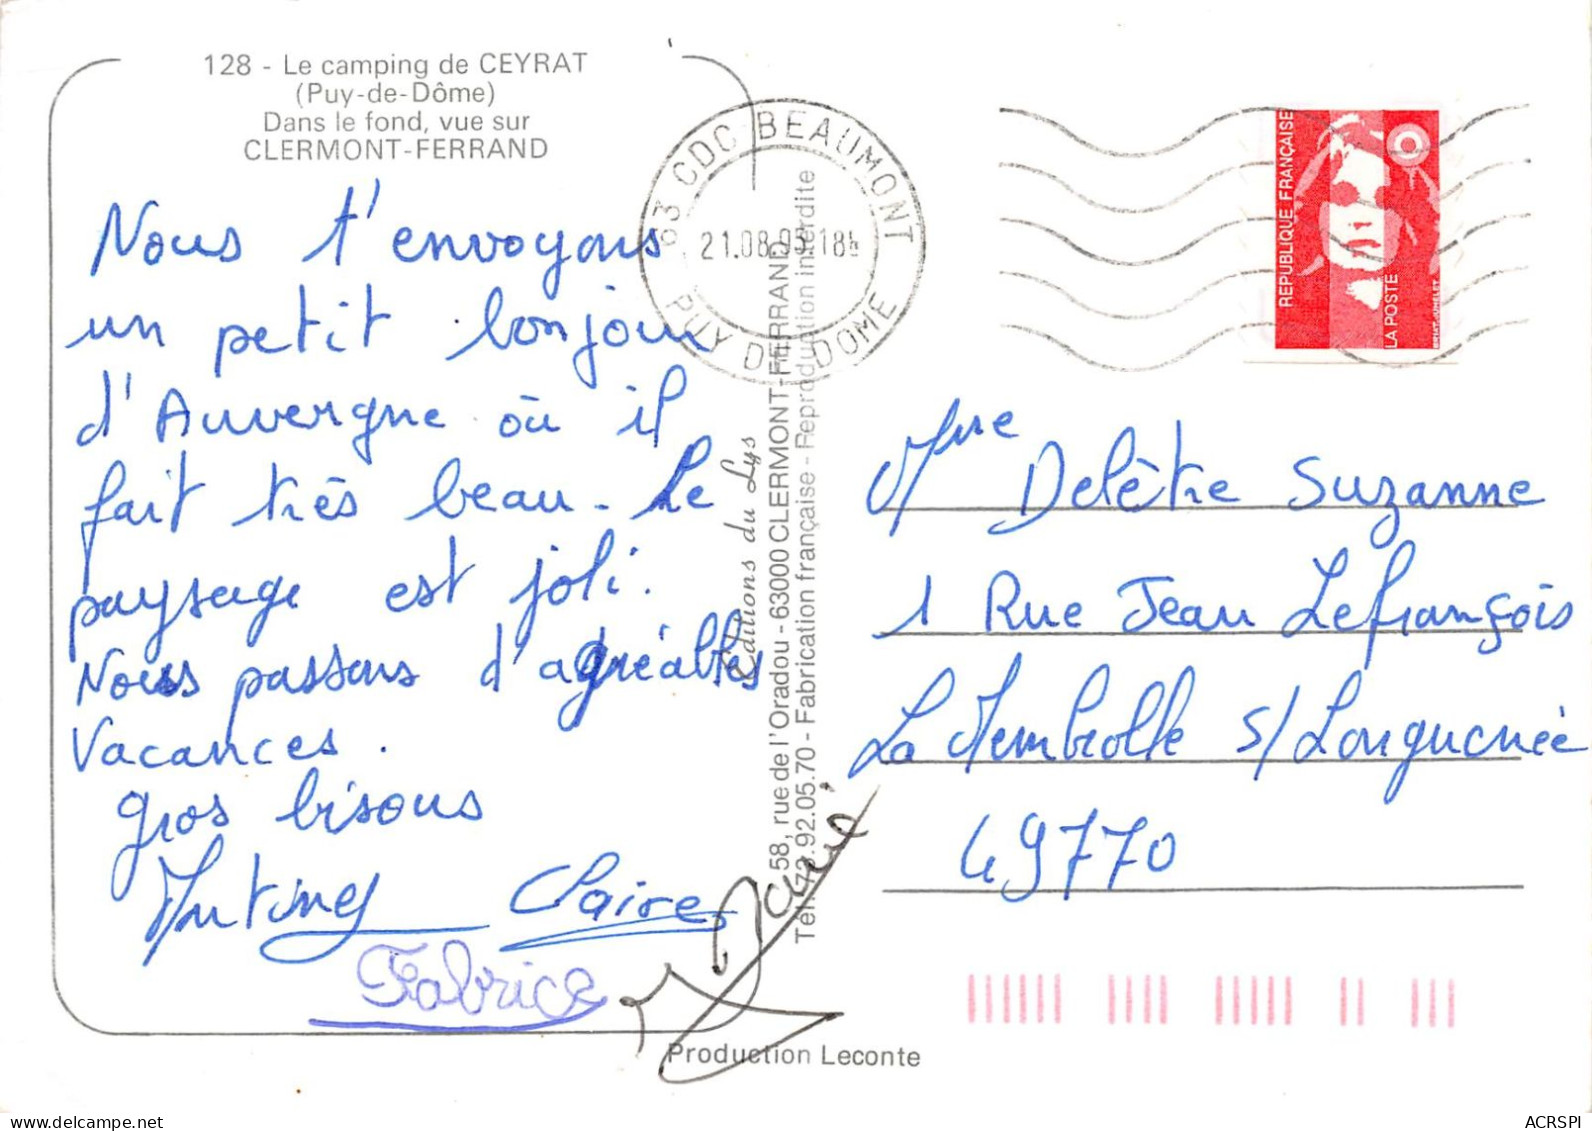 128 - Le camping de CEYRAT
(Puy-de-Dôme)
Dans le fond, vue sur
CLERMONT-FERRAND
Nous t'envoyons
un petit bonjour
d'Auvergne où il
fait très beau. Le
paysage est joli.
Nous passons d'agréables
Vacances.
gros bisous
Claire
Fabrice
63 CDC BEAUMONT
21.08.95 18h
PUY DE DOME
Editions du Lys
58, rue de l'Oradou - 63000 CLERMONT-FERRAND
Tél. 73.92.05.70 - Fabrication française - Reproduction interdite
Production Leconte
REPUBLIQUE FRANÇAISE
LA POSTE
BRIAT-JUMELET
Mme Delètre Suzanne
1 Rue Jean Lefrançois
La Membrolle s/Longuenée
49770
delcampe.net
ACRSPI